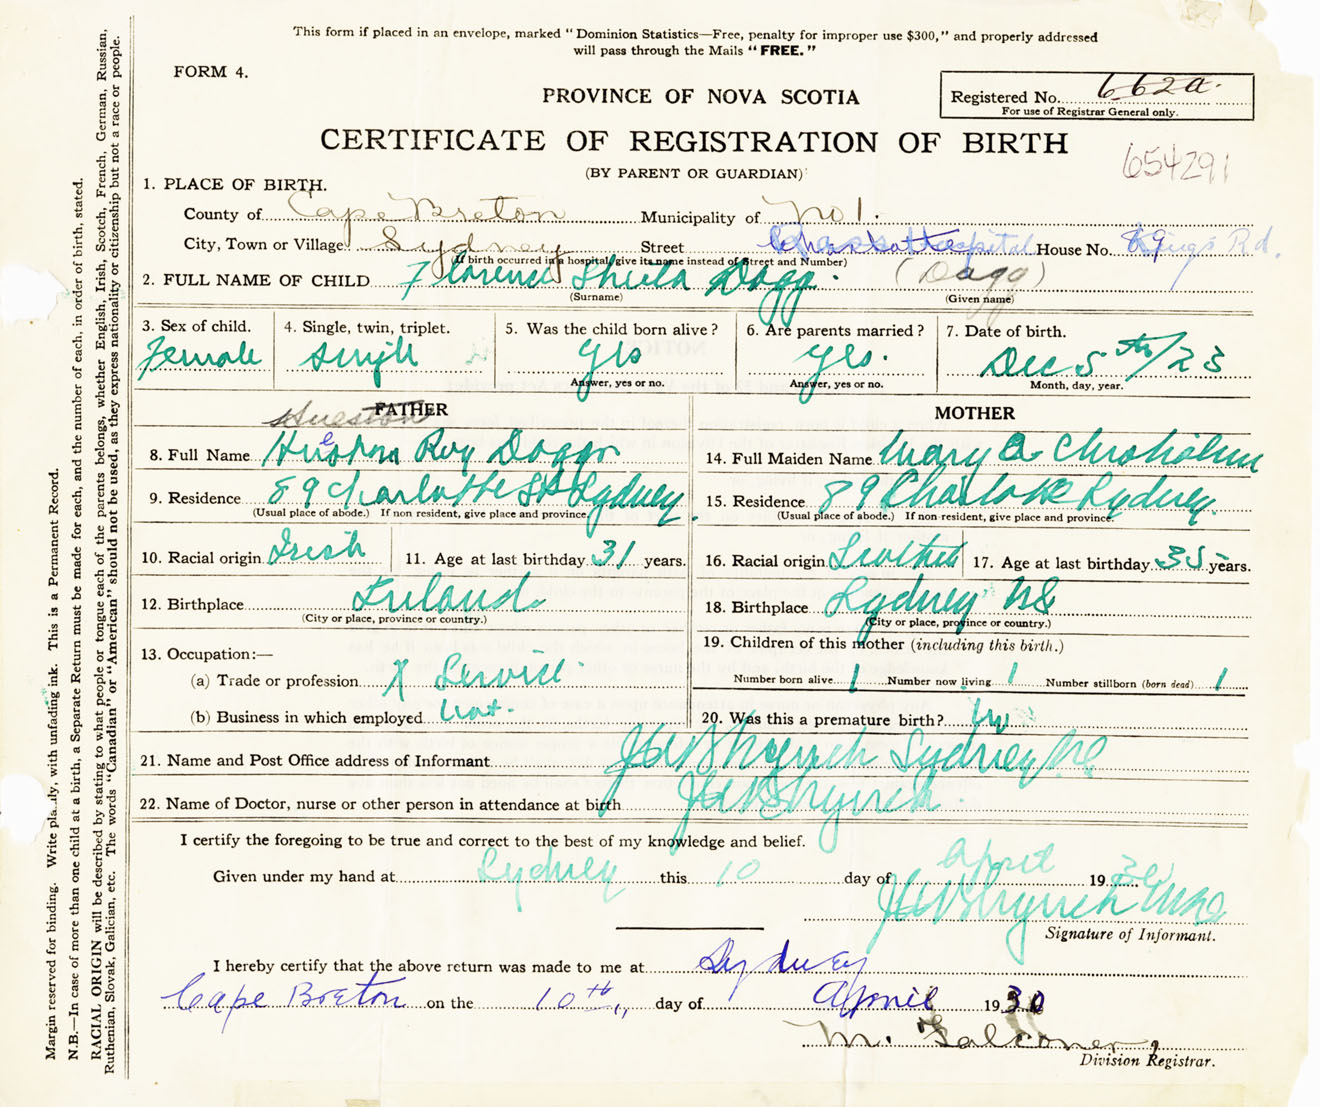 This form if placed in an envelope, marked "Dominion Statistics—Free, penalty for improper use $300," and properly addressed
will pass through the Mails "FREE."
FORM 4.
PROVINCE OF NOVA SCOTIA
Registered No. 662a.
For use of Registrar General only.
CERTIFICATE OF REGISTRATION OF BIRTH
(BY PARENT OR GUARDIAN)
654291
1. PLACE OF BIRTH.
County of Cape Breton Municipality of No 1.
City, Town or Village Sydney Street Hospital House No. 89 Kings Rd.
(If birth occurred in a hospital, give its name instead of Street and Number)
2. FULL NAME OF CHILD Florence Sheila Dagg. (Dagg)
(Surname) (Given name)
3. Sex of child. Female
4. Single, twin, triplet. single
5. Was the child born alive? yes
Answer, yes or no.
6. Are parents married? yes.
Answer, yes or no.
7. Date of birth. Dec 5th/23
Month, day, year.
FATHER
Hueston
8. Full Name Hueston Roy Dagg
9. Residence 89 Charlotte St Sydney.
(Usual place of abode.) If non resident, give place and province.
10. Racial origin Irish
11. Age at last birthday 31 years.
12. Birthplace Ireland
(City or place, province or country.)
13. Occupation:—
(a) Trade or profession X
(b) Business in which employed
MOTHER
14. Full Maiden Name Mary A Chisholm
15. Residence 89 Charlotte Sydney
(Usual place of abode.) If non-resident, give place and province.
16. Racial origin
17. Age at last birthday 35 years.
18. Birthplace Sydney NS
(City or place, province or country.)
19. Children of this mother (including this birth.)
Number born alive 1 Number now living 1 Number stillborn (born dead) 1
20. Was this a premature birth?
21. Name and Post Office address of Informant Sydney NS
22. Name of Doctor, nurse or other person in attendance at birth
I certify the foregoing to be true and correct to the best of my knowledge and belief.
Given under my hand at Sydney this 10 day of April 1930
Signature of Informant.
I hereby certify that the above return was made to me at Sydney
Cape Breton on the 10th, day of April 1930
M. Falconer,
Division Registrar.
Margin reserved for binding. Write plainly, with unfading ink. This is a Permanent Record.
N.B.—In case of more than one child at a birth, a Separate Return must be made for each, and the number of each, in order of birth, stated.
RACIAL ORIGIN will be described by stating to what people or tongue each of the parents belongs, whether English, Irish, Scotch, French, German, Russian,
Ruthenian, Slovak, Galician, etc. The words "Canadian" or "American" should not be used, as they express nationality or citizenship but not a race or people.